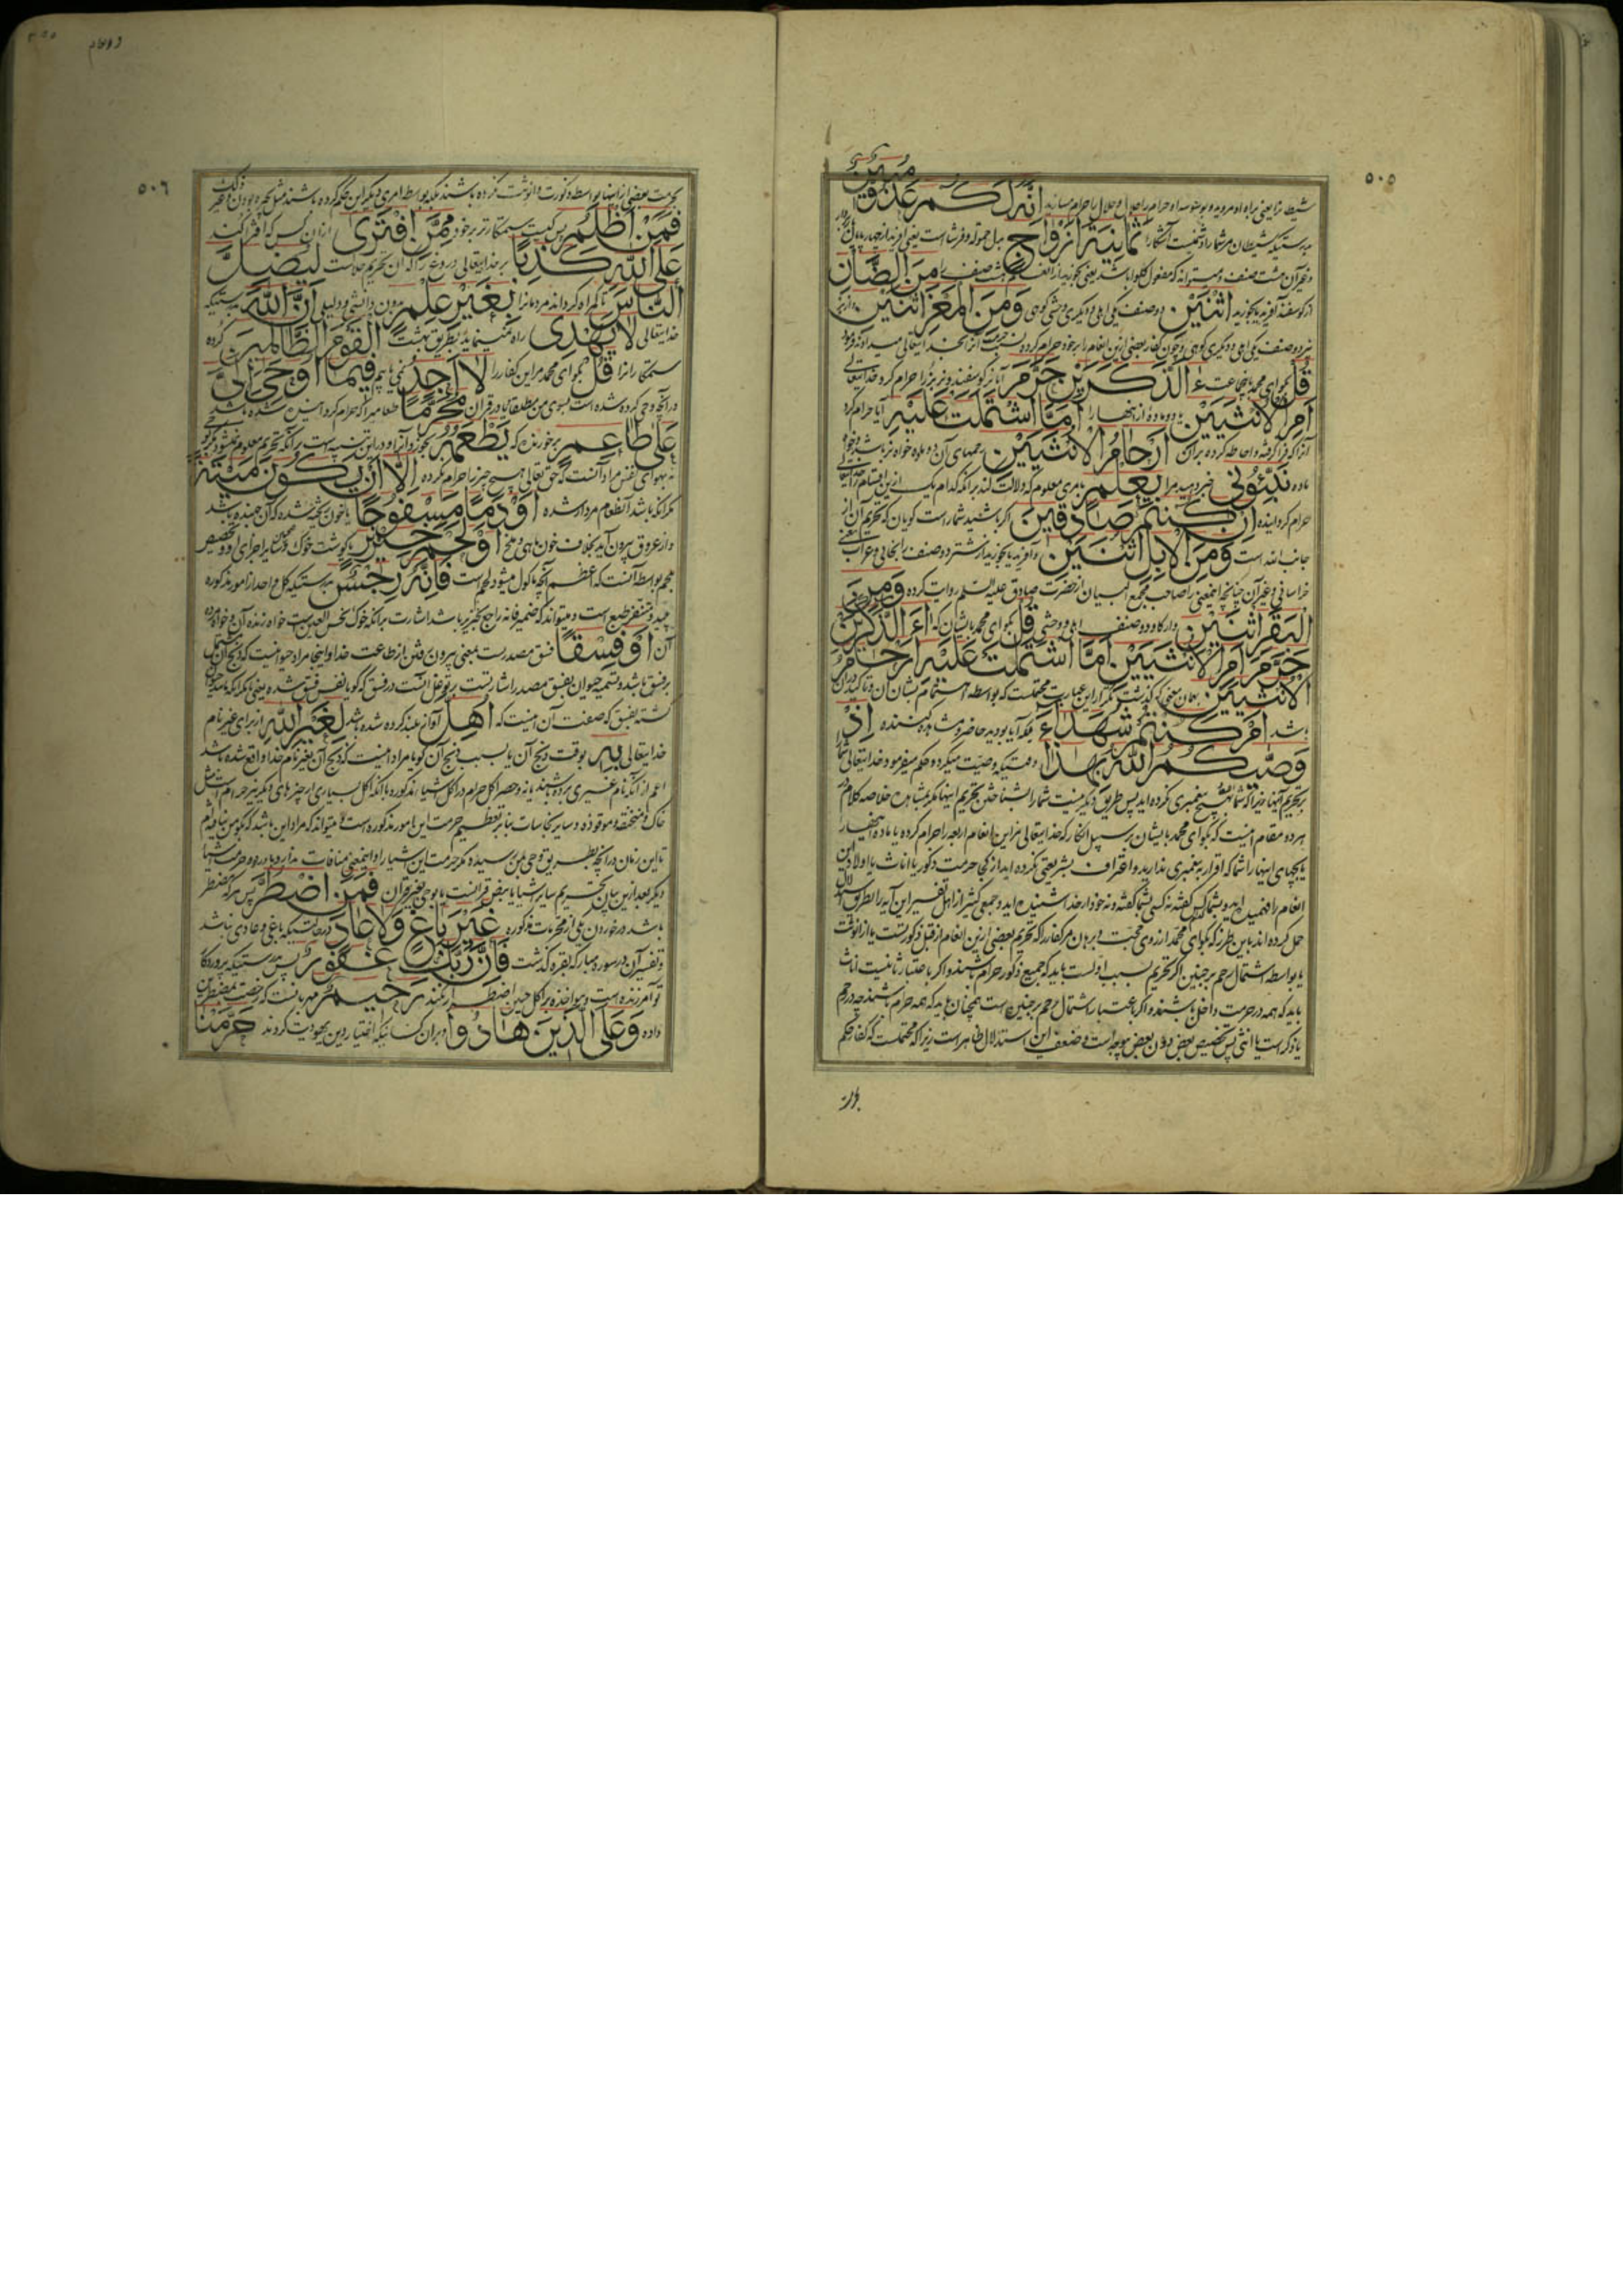 ۵۰۵
شیطان را یعنی براه او مروید و بوسوسه او حرام را حلال و حلال را حرام مسازید إِنَّهُ لَكُمْ عَدُوٌّ مُبِينٌ
بدرستیکه شیطان مر شما را دشمنیست آشکارا ثَمَانِيَةَ أَزْوَاجٍ بدل حموله و فرشا است یعنی آفرید از چهار پایان
هشت صنف را مِنَ الضَّأْنِ
از گوسفند آفرید یا بخورید اثْنَيْنِ دو صنف یکی اهلی و دیگری وحشی کوهی وَمِنَ الْمَعْزِ اثْنَيْنِ و از بز
نیز دو صنف یکی اهلی و دیگری کوهی و چون کفار بعضی ازین انعام را بر خود حرام کرده
قُلْ بگو ای محمد باین جماعت ءَالذَّكَرَيْنِ حَرَّمَ آیا نر گوسفند و نر بز را حرام کرد خدایتعالی
أَمِ الْأُنْثَيَيْنِ یا دو ماده از اینها را أَمَّا اشْتَمَلَتْ عَلَيْهِ آیا حرام کرد
آنرا که فرا گرفته و احاطه کرده بر آن أَرْحَامُ الْأُنْثَيَيْنِ رحمهای آن دو ماده خواه نر باشد و خواه
ماده نَبِّئُونِي خبر دهید مرا بِعِلْمٍ بامری معلوم که دلالت کند بر آنکه کدام یک ازین اقسام را خدایتعالی
حرام گردانیده إِنْ كُنْتُمْ صَادِقِينَ اگر باشید شما راست گویان که تحریم آن از
جانب الله است وَمِنَ الْإِبِلِ اثْنَيْنِ و آفرید یا بخورید از شتر دو صنف
خراسانی و غیر آن چنانچه اینمعنی را صاحب مجمع البیان از حضرت صادق علیه السلم روایت کرده وَمِنَ
الْبَقَرِ اثْنَيْنِ و از گاو دو صنف اهلی و وحشی قُلْ بگو ای محمد بایشان که ءَالذَّكَرَيْنِ
حَرَّمَ أَمِ الْأُنْثَيَيْنِ أَمَّا اشْتَمَلَتْ عَلَيْهِ أَرْحَامُ
الْأُنْثَيَيْنِ بهمان معنی که گذشت تکرار این عبارت محتملست که بواسطه اهتمام بشان آن و تاکید در آن
باشد أَمْ كُنْتُمْ شُهَدَاءَ بلکه آیا بودید حاضر و مشاهده کننده إِذْ
وَصَّيكُمُ اللَّهُ بِهَذَا وقتیکه وصیت میکرد و حکم میفرمود خدایتعالی شما را
بر تحریم آنها زیرا که شما تصدیق هیچ پیغمبری نکرده اید پس طریق دیگر نیست شما را بشناختن تحریم اینها مگر بمشاهده خلاصه کلام در
هر دو مقام اینست که بگو ای محمد بایشان بر سبیل انکار که خدایتعالی نر این انعام اربعه را حرام کرده یا ماده اینها را
یا بچهای اینها را شما که اقرار به پیغمبری ندارید و اعتراف بشریعتی نکرده اید از کجا حرمت ذکور یا اناث یا اولاد این
انعام را فهمیده اید و جمعی کثیر از اهل تفسیر این آیه را بطریق استدلال
حمل کرده اند باین طرز که بگو ای محمد از روی محبت و برهان مر کفار را که تحریم بعضی ازین انعام از قبل ذکورتست یا از انوثت
یا بواسطه اشتمال رحم بر جنین اگر تحریم بسبب اولست باید که جمیع ذکور حرام باشند و اگر باعتبار ثانیست اناث
باید که همه در حرمت داخل باشند و اگر باعتبار اشتمال رحم بر جنین است همچنان باید که همه حرام باشند چه در رحم
یا ذکر است یا انثی پس تخصیص بعض دون بعض بیوجه است و ضعف این استدلال ظاهر است زیرا که محتملست که کفار حکم
۵۰۶
بحرمت بعضی از اینها بواسطه ذکورت و انوثت نکرده باشند بلکه بواسطه امری دیگر این حکم کرده باشند
فَمَنْ أَظْلَمُ پس کیست ستمکارتر بر خود مِمَّنِ افْتَرَى از آن کس که افترا کند
عَلَى اللَّهِ كَذِبًا بر خدایتعالی دروغی را که آن تحریم حلالست لِيُضِلَّ
النَّاسَ تا گمراه گرداند مردمانرا بِغَيْرِ عِلْمٍ بدون دانشی و دلیلی إِنَّ اللَّهَ بدرستیکه
خدایتعالی لَا يَهْدِي راه نمینماید بطریق بهشت الْقَوْمَ الظَّالِمِينَ گروه
ستمکارانرا قُلْ بگو ای محمد مر این کفار را لَا أَجِدُ نمی یابم فِيمَا أُوحِيَ إِلَيَّ
در آنچه وحی کرده شده است بسوی من مطلقا یا در قران مُحَرَّمًا طعامیرا که حرام کرده شده باشد
عَلَى طَاعِمٍ بر خورنده که يَطْعَمُهُ بخورد آنرا و در این تنبیه است بر آنکه تحریم معلوم نمیشود مگر بوحی
نه بهوای نفس مراد آنست که حق تعالی هیچ چیز را حرام نکرده إِلَّا أَنْ يَكُونَ مَيْتَةً
مگر آنکه باشد آنطعام مردار شده أَوْ دَمًا مَسْفُوحًا یا خون ریخته شده که آن جهنده باشد
و از عروق بیرون آید بخلاف خون ماهی و ملخ أَوْ لَحْمَ خِنْزِيرٍ یا گوشت خوک و همچنین سایر اجزای او و تخصیص
لحم بواسطه آنست که اعظم آنچه ماکول میشود لحم است فَإِنَّهُ رِجْسٌ بدرستیکه کل واحد از امور مذکوره
پلید و متنفر طبع است و میتواند که ضمیر فانه راجع بخنزیر باشد اشارت بر آنکه خوک نجس العین است خواه زنده آن و خواه مرده
آن أَوْ فِسْقًا فسق مصدرست بمعنی بیرون رفتن از طاعت خدا و اینجا مراد حیوانیست که ذبح آن مشتمل
بر فسق باشد و تسمیه حیوان بفسق مصدر اشارتست بتوغل آنست در فسق که گویا نفس فسق شده یعنی مگر آنکه باشد حیوان
کشته بفسق که صفت آن اینست که أُهِلَّ آواز بلند کرده شده باشد لِغَيْرِ اللَّهِ از برای غیر نام
خدایتعالی بِهِ بوقت ذبح آن یا بسبب ذبح آن گویا مراد اینست که ذبح آن بغیر نام خدا واقع شده باشد
اعم از آنکه نام غیری برده باشند یا نه و حصر اکل حرام در اکل اشیاء مذکوره با آنکه اکل بسیاری از چیزهای دیگر نیز حرام است مثل
خاک و منخنقه و موقوذه و سایر نجاسات بنابر تعظیم حرمت این امور مذکوره است و میتواند که مراد این باشد که بگو من نیافته ام
تا این زمان در آنچه بطریق وحی بمن رسیده مگر حرمت این اشیا را و اینمعنی منافات ندارد با ورود حرمت اشیاء
دیگر بعد ازین فَمَنِ اضْطُرَّ پس هر که مضطر
باشد در خوردن یکی از محرمات مذکوره غَيْرَ بَاغٍ وَلَا عَادٍ در حالتیکه باغی و عادی نباشد
و تفسیر آن در سوره مبارکه بقره گذشت فَإِنَّ رَبَّكَ غَفُورٌ پس بدرستیکه پروردگار
تو آمرزنده است رَحِيمٌ مهربانست که رخصت بمضطرین
داده وَعَلَى الَّذِينَ هَادُوا و بر آن کسانیکه اختیار دین یهودیت کردند حَرَّمْنَا